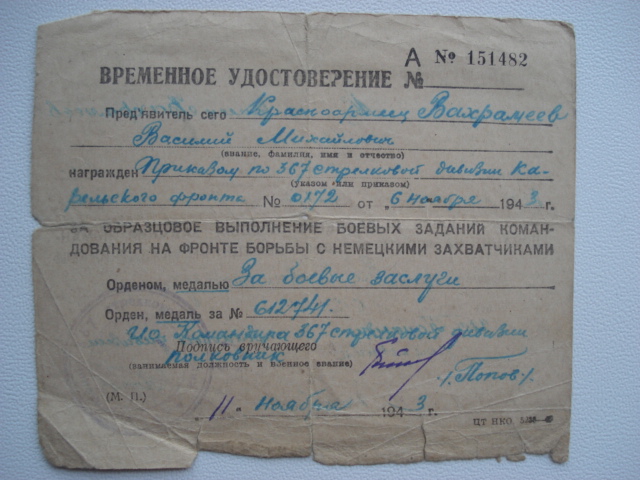 А № 151482
ВРЕМЕННОЕ УДОСТОВЕРЕНИЕ №
Пред'явитель сего Красноармеец Вахрамеев
Василий Михайлович
(звание, фамилия, имя и отчество)
награжден Приказом по 367 стрелковой дивизии Ка-
(указом или приказом)
рельского фронта № 0172 от „ 6 ноября 1943 г.
ЗА ОБРАЗЦОВОЕ ВЫПОЛНЕНИЕ БОЕВЫХ ЗАДАНИЙ КОМАН-
ДОВАНИЯ НА ФРОНТЕ БОРЬБЫ С НЕМЕЦКИМИ ЗАХВАТЧИКАМИ
Орденом, медалью За боевые заслуги
Орден, медаль за № 612741.
И.о. Командира 367 стрелковой дивизии
Подпись вручающего
полковник
(занимаемая должность и военное звание)
/. Попов ./
(М. П.)
„ 11 „ ноября 1943 г.
ЦТ НКО